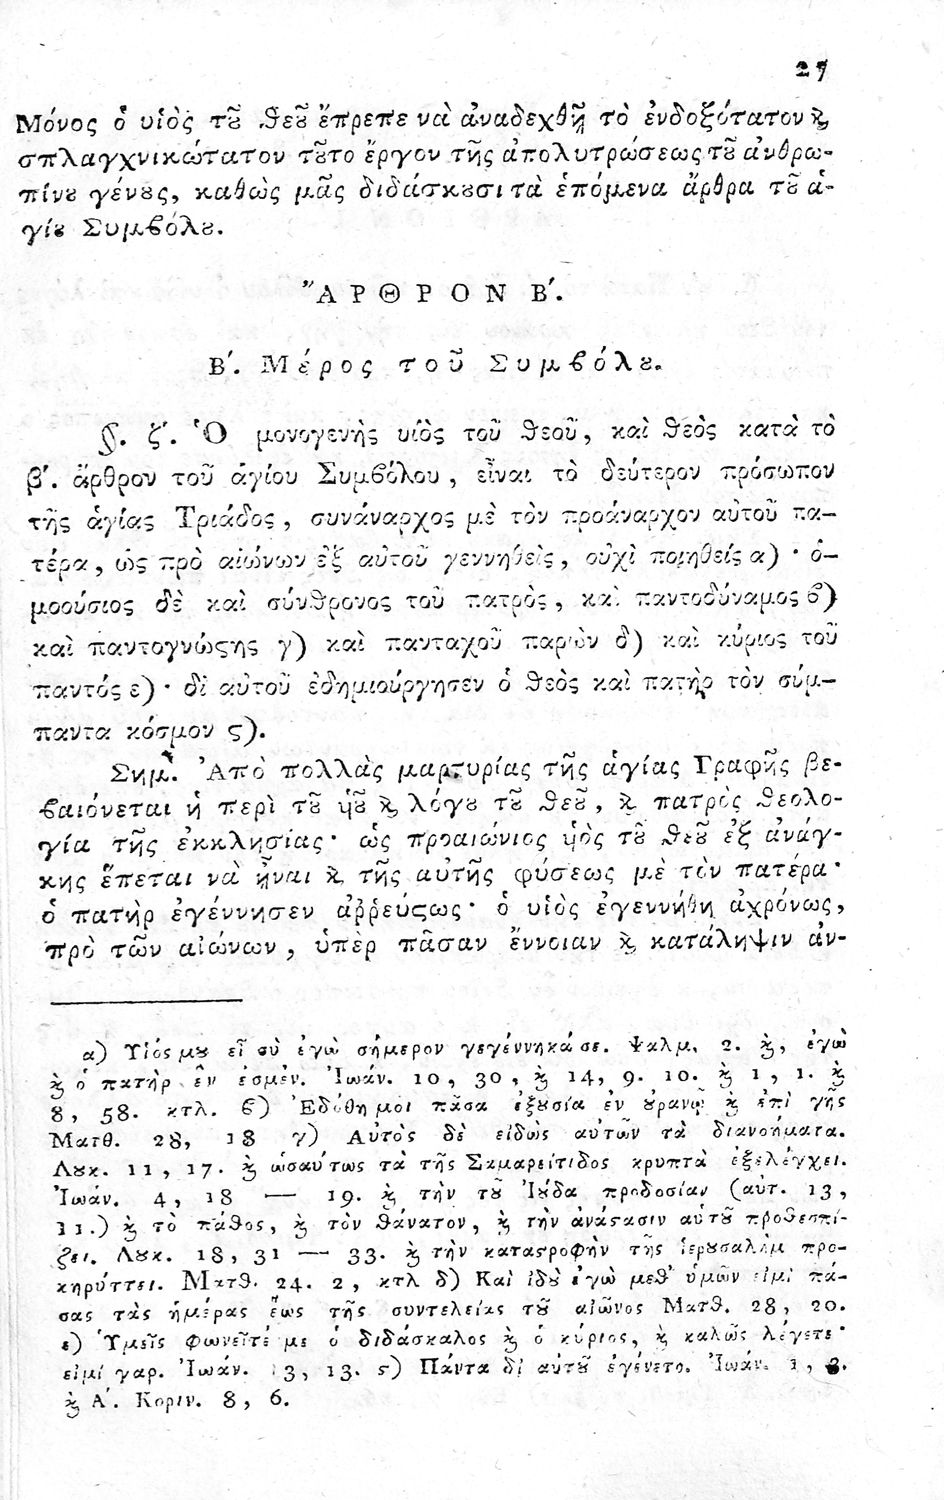 27
Μόνος ὁ υἱὸς τȣ͂ Θεȣ͂ ἔπρεπε νὰ ἀναδεχθῇ τὸ ἐνδοξότατον ϗ
σπλαγχνικώτατον τȣ͂το ἔργον τῆς ἀπολυτρώσεως τȣ͂ ἀνθρω-
πίνȣ γένȣς, καθὼς μᾶς διδάσκȣσι τὰ ἑπόμενα ἄρθρα τȣ͂ ἁ-
γίȣ Συμβόλȣ.
ἌΡΘΡΟΝ Β΄.
Β΄. Μέρος τοῦ Συμβόλȣ.
§. ζ΄. Ὁ μονογενὴς υἱὸς τοῦ Θεοῦ, καὶ Θεὸς κατὰ τὸ
β΄. ἄρθρον τοῦ ἁγίου Συμβόλου, εἶναι τὸ δεύτερον πρόσωπον
τῆς ἁγίας Τριάδος, συνάναρχος μὲ τὸν προάναρχον αὑτοῦ πα-
τέρα, ὡς πρὸ αἰώνων ἐξ αὐτοῦ γεννηθεὶς, οὐχὶ ποιηθείς α) · ὁ-
μοούσιος δὲ καὶ σύνθρονος τοῦ πατρὸς, καὶ παντοδύναμος ϐ)
καὶ παντογνώϛης γ) καὶ πανταχοῦ παρὼν δ) καὶ κύριος τοῦ
παντός ε) · δἰ αὐτοῦ ἐδημιούργησεν ὁ Θεὸς καὶ πατὴρ τὸν σύμ-
παντα κόσμον ϛ).
Σημ. Ἀπὸ πολλὰς μαρτυρίας τῆς ἁγίας Γραφῆς βε-
ϐαιόνεται ἡ περὶ τȣ͂ ὑȣ͂ ϗ λόγȣ τȣ͂ Θεȣ͂, ϗ πατρὸς θεολο-
γία τῆς ἐκκλησίας· ὡς προαιώνιος ὑὸς τȣ͂ Θεȣ͂ ἐξ ἀνάγ-
κης ἕπεται νὰ ᾖναι ϗ τῆς αὐτῆς φύσεως μὲ τὸν πατέρα·
ὁ πατὴρ ἐγέννησεν ἀῤῥεύϛως· ὁ υἱὸς ἐγεννήθη ἀχρόνως,
πρὸ τῶν αἰώνων, ὑπὲρ πᾶσαν ἔννοιαν ϗ κατάληψιν ἀν-
α) Υἱός μȣ εἶ σὺ ἐγὼ σήμερον γεγέννηκά σε. Ψαλμ. 2. ϗ, ἐγὼ
ϗ ὁ πατὴρ ἓν ἐσμὲν. Ἰωάν. 10, 30, ϗ 14, 9. 10. ϗ 1, 1. ϗ
8, 58. κτλ. ϐ) Ἐδόθη μοι πᾶσα ἐξȣσία ἐν ȣ̓ρανῷ ϗ ἐπὶ γῆς
Ματθ. 28, 18 γ) Αὐτὸς δὲ εἰδὼς αὐτῶν τὰ διανοήματα.
Λȣκ. 11, 17. ϗ ὡσαύτως τὰ τῆς Σαμαρείτιδος κρυπτὰ ἐξελέγχει.
Ἰωάν. 4, 18 — 19. ϗ τὴν τȣ͂ Ἰȣ́δα προδοσίαν (αὐτ. 13,
11.) ϗ τὸ πάθος, ϗ τὸν θάνατον, ϗ τὴν ἀνάϛασιν αὑτȣ͂ προθεσπί-
ζει. Λȣκ. 18, 31 — 33. ϗ τὴν καταϛροφὴν τῆς Ἱερȣσαλὴμ προ-
κηρύττει. Ματθ. 24. 2, κτλ δ) Καὶ ἰδȣ̀ ἐγὼ μεθ' ὑμῶν εἰμὶ πά-
σας τὰς ἡμέρας ἕως τῆς συντελείας τȣ͂ αἰῶνος Ματθ. 28, 20.
ε) Ὑμεῖς φωνεῖτέ με ὁ διδάσκαλος ϗ ὁ κύριος, ϗ καλῶς λέγετε·
εἰμί γαρ. Ἰωάν. 13, 13. ϛ) Πάντα δἰ αὐτȣ͂ ἐγένετο. Ἰωάν. 1, 3.
ϗ Α΄. Κοριν. 8, 6.